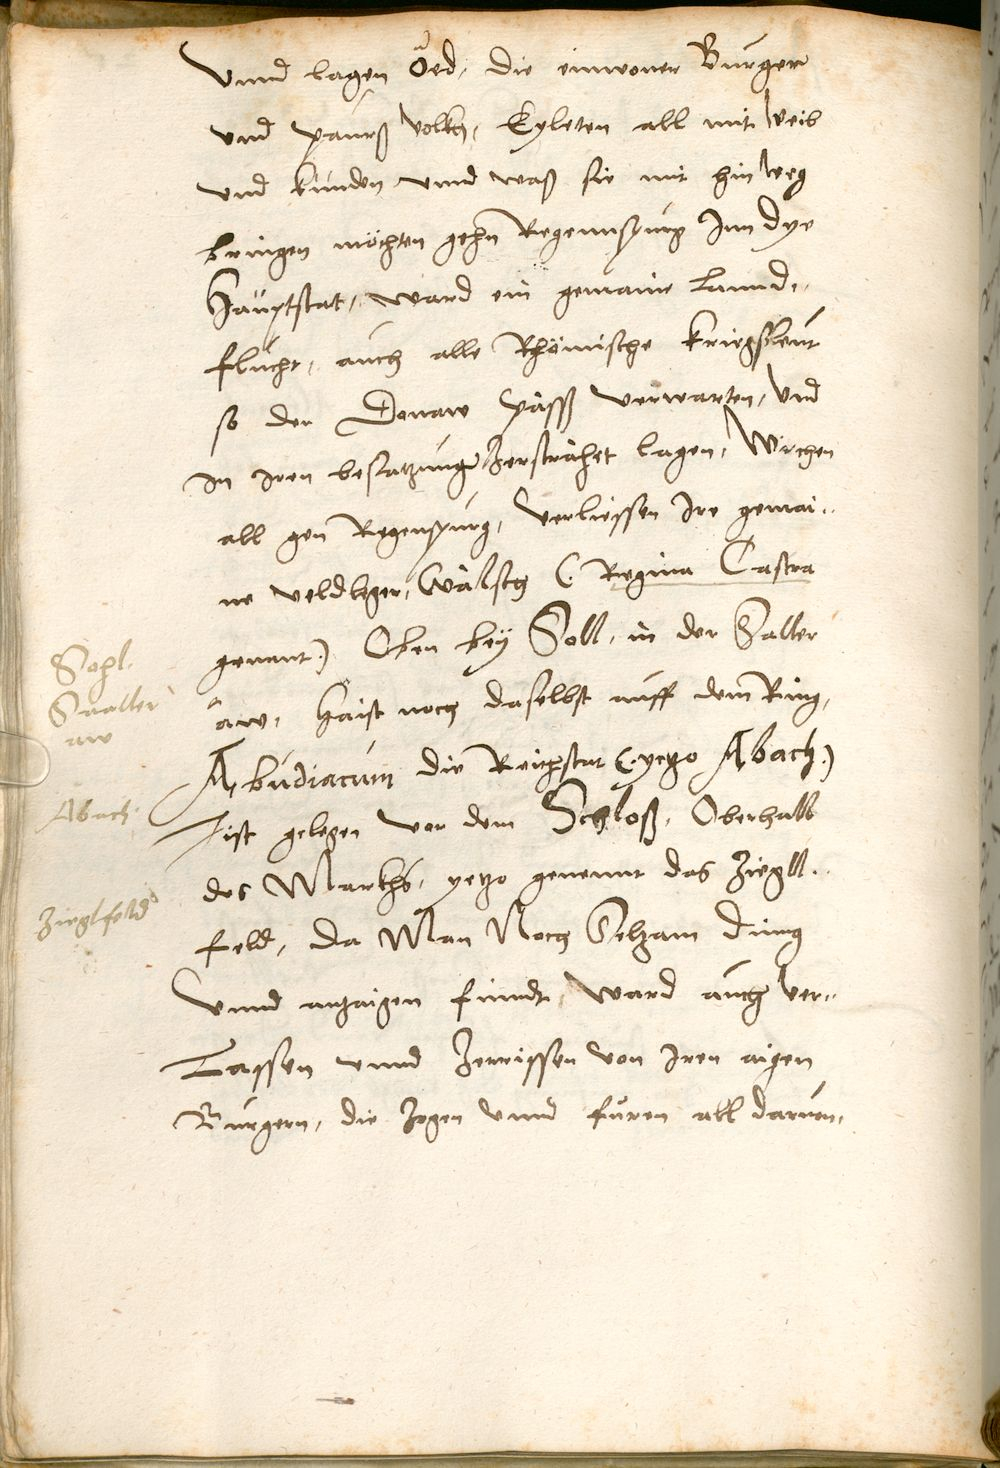 Vnnd lagen Öed, die einwoner Burger
vnd paurß Volkh, Eyleten all mit Weib
vnd kinden vnnd waß sie mit hin Weg
bringen möchten gehn Regennspurg Inn dye
Hauptstat, ward ein gemaine Lannd,,
flucht, auch alle Rhömische kriegsleut
so der Donaw päss verwarten, Vnd
In Iren besatzungen Zersträhet lagen, Wichen
all gen Regenspurg, Verliessen Ire gemai,,
ne veldleger, Wälsch (Regina Castra
genant) Oben bey Soll, in der Saller
aw, haist noch daselbst auff dem Ring,
Abudiacum die Reichstat (yetzo Abach)
ist gelegen vor dem Schloß, Oberhalb
des Markhs, yetzo genennt das Ziegll,,
feld, Da Man Noch Selzam Ding
Vnnd anzaigen findt, Ward auch Ver,,
Lassen vnnd Zerrissen von Iren aigen
Burgern, die Zogen Vnnd furen all daruon,
Sohl.
Saaller
aw
Abach.
Zieglfeld